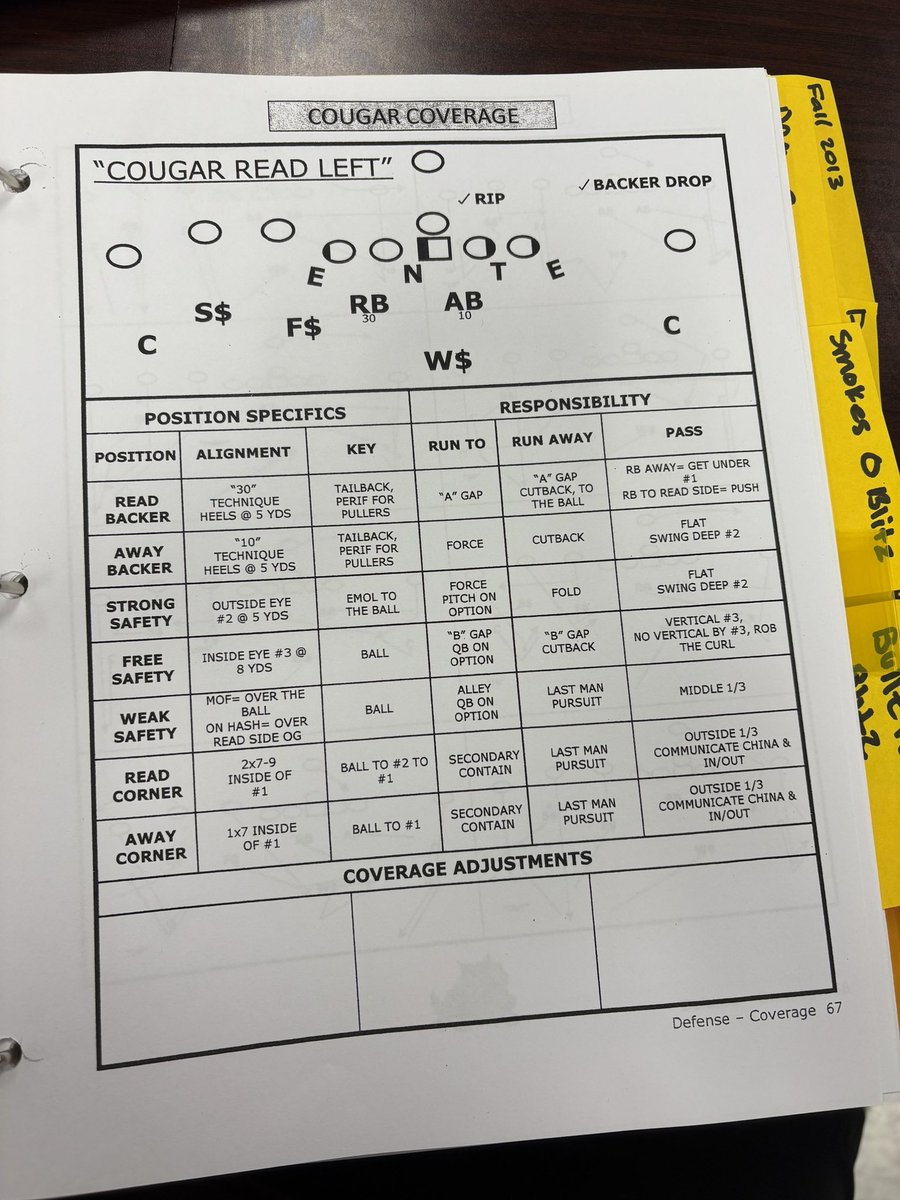 COUGAR COVERAGE
"COUGAR READ LEFT"
✓ RIP
✓ BACKER DROP
E N T E
S$ F$ RB AB
30 10
C C
W$
POSITION SPECIFICS RESPONSIBILITY
POSITION ALIGNMENT KEY RUN TO RUN AWAY PASS
READ
BACKER
"30"
TECHNIQUE
HEELS @ 5 YDS
TAILBACK,
PERIF FOR
PULLERS
"A" GAP
"A" GAP
CUTBACK, TO
THE BALL
RB AWAY= GET UNDER
#1
RB TO READ SIDE= PUSH
AWAY
BACKER
"10"
TECHNIQUE
HEELS @ 5 YDS
TAILBACK,
PERIF FOR
PULLERS
FORCE
CUTBACK
FLAT
SWING DEEP #2
STRONG
SAFETY
OUTSIDE EYE
#2 @ 5 YDS
EMOL TO
THE BALL
FORCE
PITCH ON
OPTION
FOLD
FLAT
SWING DEEP #2
FREE
SAFETY
INSIDE EYE #3 @
8 YDS
BALL
"B" GAP
QB ON
OPTION
"B" GAP
CUTBACK
VERTICAL #3,
NO VERTICAL BY #3, ROB
THE CURL
WEAK
SAFETY
MOF= OVER THE
BALL
ON HASH= OVER
READ SIDE OG
BALL
ALLEY
QB ON
OPTION
LAST MAN
PURSUIT
MIDDLE 1/3
READ
CORNER
2x7-9
INSIDE OF
#1
BALL TO #2 TO
#1
SECONDARY
CONTAIN
LAST MAN
PURSUIT
OUTSIDE 1/3
COMMUNICATE CHINA &
IN/OUT
AWAY
CORNER
1x7 INSIDE
OF #1
BALL TO #1
SECONDARY
CONTAIN
LAST MAN
PURSUIT
OUTSIDE 1/3
COMMUNICATE CHINA &
IN/OUT
COVERAGE ADJUSTMENTS
Defense – Coverage 67
Fall 2013
Smokes O Blitz